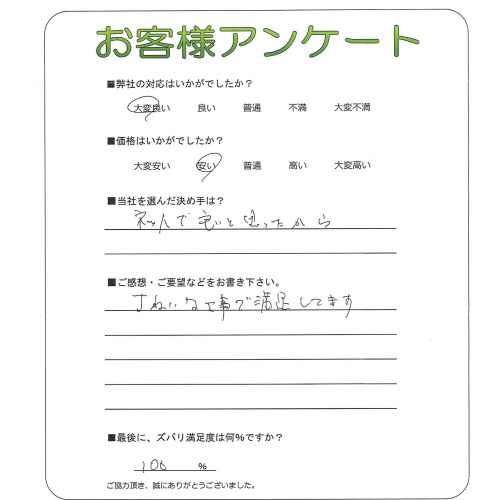 お客様アンケート
■弊社の対応はいかがでしたか？
大変良い 良い 普通 不満 大変不満
■価格はいかがでしたか？
大変安い 安い 普通 高い 大変高い
■当社を選んだ決め手は？
ネットで安いと思ったから
■ご感想・ご要望などをお書き下さい。
きれいな仕事で満足してます
■最後に、ズバリ満足度は何%ですか？
100 %
ご協力頂き、誠にありがとうございました。